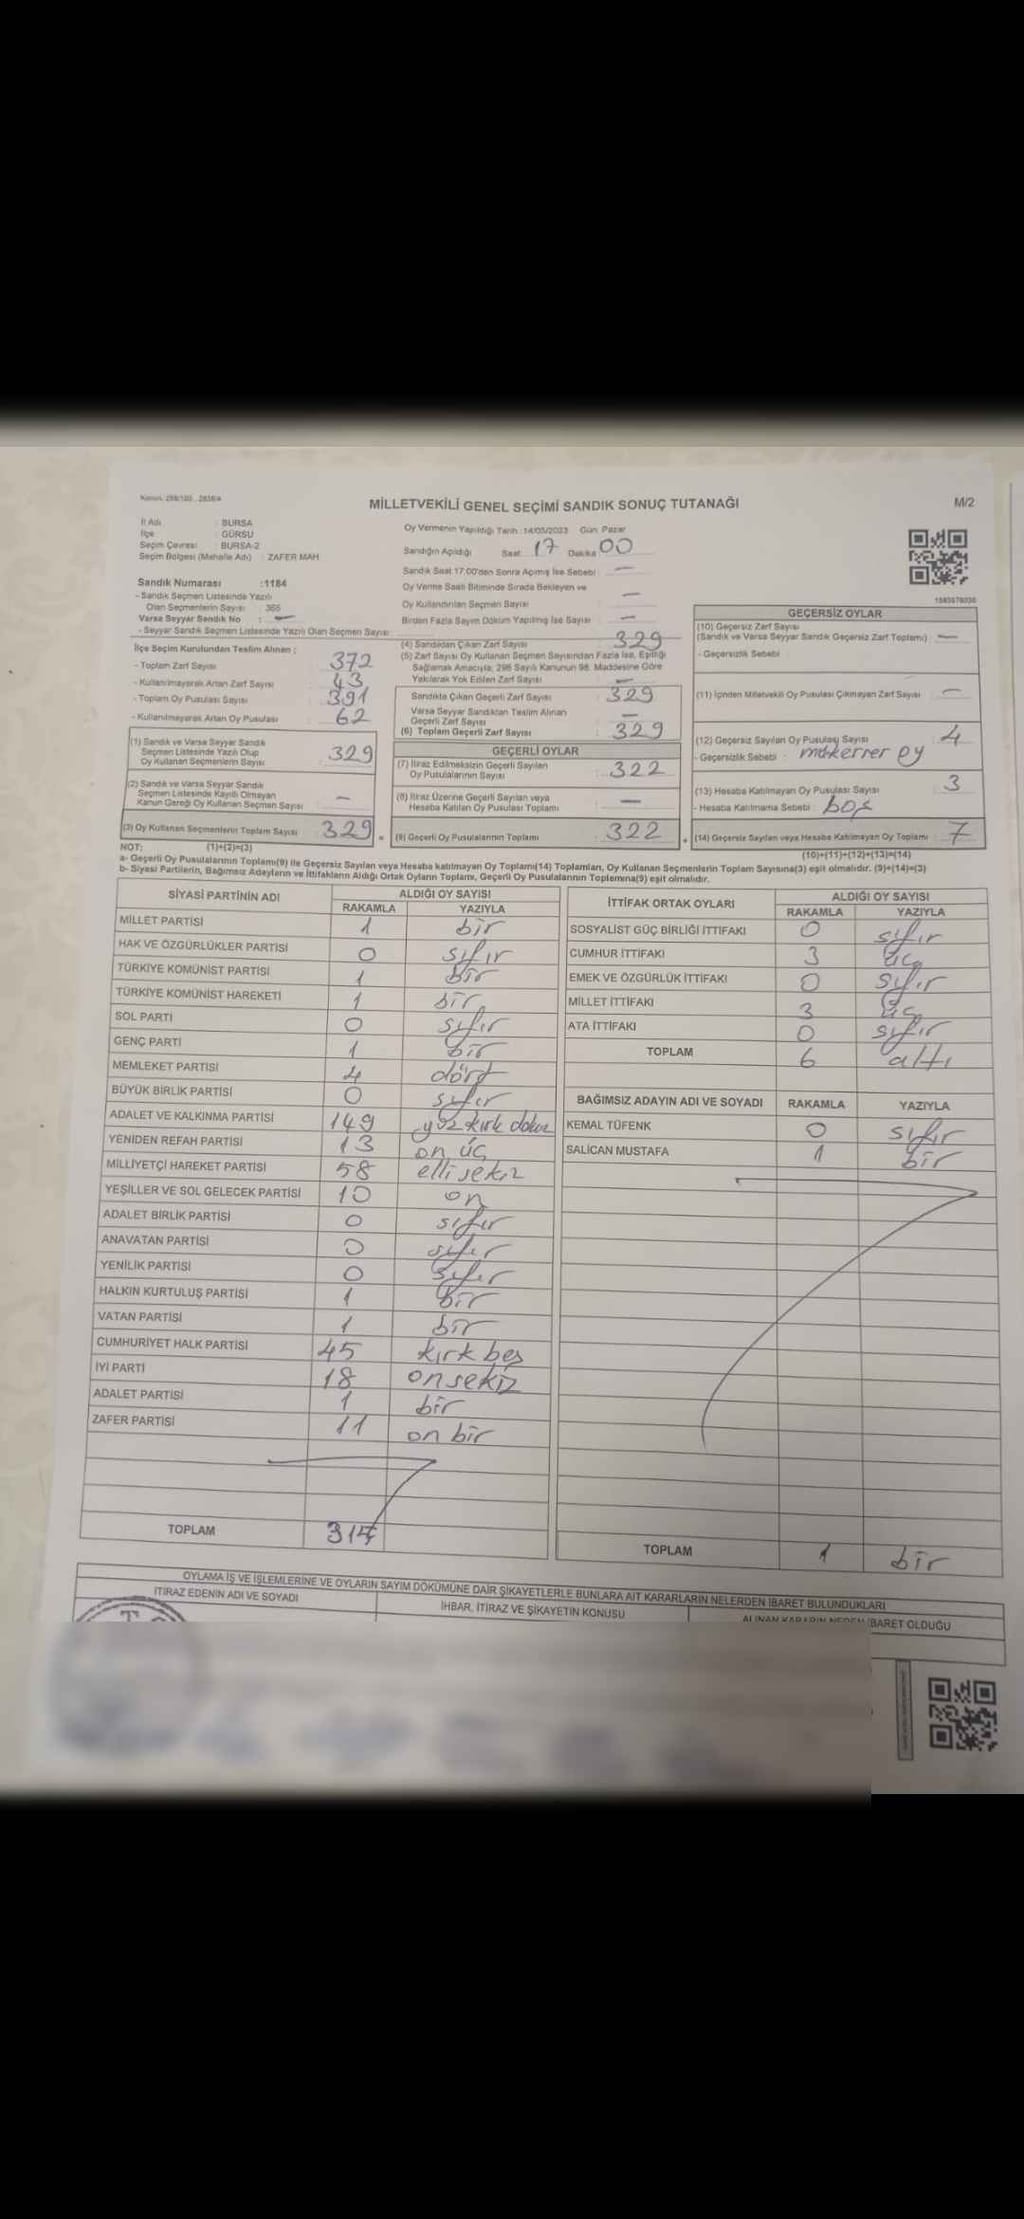 MİLLETVEKİLİ GENEL SEÇİMİ SANDIK SONUÇ TUTANAĞI
M/2
İl Adı : BURSA
İlçe : GÜRSU
Seçim Çevresi : BURSA-2
Seçim Bölgesi (Mahalle Adı) : ZAFER MAH
Sandık Numarası :1184
- Sandık Seçmen Listesinde Yazılı
Olan Seçmenlerin Sayısı : 365
Varsa Seyyar Sandık No : —
- Seyyar Sandık Seçmen Listesinde Yazılı Olan Seçmen Sayısı
Oy Vermenin Yapıldığı Tarih :14/05/2023 Gün: Pazar
Sandığın Açıldığı Saat 17 Dakika 00
Sandık Saat 17.00'den Sonra Açılmış İse Sebebi : —
Oy Verme Saati Bitiminde Sırada Bekleyen ve
Oy Kullandırılan Seçmen Sayısı —
Birden Fazla Sayım Döküm Yapılmış İse Sayısı —
İlçe Seçim Kurulundan Teslim Alınan ;
- Toplam Zarf Sayısı : 372
- Kullanılmayarak Artan Zarf Sayısı : 43
- Toplam Oy Pusulası Sayısı : 391
- Kullanılmayarak Artan Oy Pusulası : 62
(1) Sandık ve Varsa Seyyar Sandık
Seçmen Listesinde Yazılı Olup
Oy Kullanan Seçmenlerin Sayısı : 329
(2) Sandık ve Varsa Seyyar Sandık
Seçmen Listesinde Kayıtlı Olmayan
Kanun Gereği Oy Kullanan Seçmen Sayısı : —
(3) Oy Kullanan Seçmenlerin Toplam Sayısı : 329 =
(4) Sandıktan Çıkan Zarf Sayısı : 329
(5) Zarf Sayısı Oy Kullanan Seçmen Sayısından Fazla İse, Eşitliği
Sağlamak Amacıyla; 298 Sayılı Kanunun 98. Maddesine Göre
Yakılarak Yok Edilen Zarf Sayısı : —
Sandıkta Çıkan Geçerli Zarf Sayısı : 329
Varsa Seyyar Sandıktan Teslim Alınan
Geçerli Zarf Sayısı —
(6) Toplam Geçerli Zarf Sayısı : 329
GEÇERLİ OYLAR
(7) İtiraz Edilmeksizin Geçerli Sayılan
Oy Pusulalarının Sayısı : 322
(8) İtiraz Üzerine Geçerli Sayılan veya
Hesaba Katılan Oy Pusulası Toplamı : —
(9) Geçerli Oy Pusulalarının Toplamı : 322 +
GEÇERSİZ OYLAR
(10) Geçersiz Zarf Sayısı
(Sandık ve Varsa Seyyar Sandık Geçersiz Zarf Toplamı) : —
- Geçersizlik Sebebi :
(11) İçinden Milletvekili Oy Pusulası Çıkmayan Zarf Sayısı : —
(12) Geçersiz Sayılan Oy Pusulası Sayısı : 4
- Geçersizlik Sebebi : mükerrer oy
(13) Hesaba Katılmayan Oy Pusulası Sayısı : 3
- Hesaba Katılmama Sebebi : boş
(14) Geçersiz Sayılan veya Hesaba Katılmayan Oy Toplamı : 7
NOT: (1)+(2)=(3)
(10)+(11)+(12)+(13)=(14)
a- Geçerli Oy Pusulalarının Toplamı(9) ile Geçersiz Sayılan veya Hesaba katılmayan Oy Toplamı(14) Toplamları, Oy Kullanan Seçmenlerin Toplam Sayısına(3) eşit olmalıdır. (9)+(14)=(3)
b- Siyasi Partilerin, Bağımsız Adayların ve İttifakların Aldığı Ortak Oyların Toplamı, Geçerli Oy Pusulalarının Toplamına(9) eşit olmalıdır.
SİYASİ PARTİNİN ADI ALDIĞI OY SAYISI
RAKAMLA YAZIYLA
MİLLET PARTİSİ 1 bir
HAK VE ÖZGÜRLÜKLER PARTİSİ 0 sıfır
TÜRKİYE KOMÜNİST PARTİSİ 1 bir
TÜRKİYE KOMÜNİST HAREKETİ 1 bir
SOL PARTİ 0 sıfır
GENÇ PARTİ 1 bir
MEMLEKET PARTİSİ 4 dört
BÜYÜK BİRLİK PARTİSİ 0 sıfır
ADALET VE KALKINMA PARTİSİ 149 yüz kırk dokuz
YENİDEN REFAH PARTİSİ 13 on üç
MİLLİYETÇİ HAREKET PARTİSİ 58 elli sekiz
YEŞİLLER VE SOL GELECEK PARTİSİ 10 on
ADALET BİRLİK PARTİSİ 0 sıfır
ANAVATAN PARTİSİ 0 sıfır
YENİLİK PARTİSİ 0 sıfır
HALKIN KURTULUŞ PARTİSİ 1 bir
VATAN PARTİSİ 1 bir
CUMHURİYET HALK PARTİSİ 45 kırk beş
İYİ PARTİ 18 onsekiz
ADALET PARTİSİ 1 bir
ZAFER PARTİSİ 11 on bir
TOPLAM
İTTİFAK ORTAK OYLARI ALDIĞI OY SAYISI
RAKAMLA YAZIYLA
SOSYALİST GÜÇ BİRLİĞİ İTTİFAKI 0 sıfır
CUMHUR İTTİFAKI 3 üç
EMEK VE ÖZGÜRLÜK İTTİFAKI 0 sıfır
MİLLET İTTİFAKI 3 üç
ATA İTTİFAKI 0 sıfır
TOPLAM 6 altı
BAĞIMSIZ ADAYIN ADI VE SOYADI RAKAMLA YAZIYLA
KEMAL TÜFENK 0 sıfır
SALİCAN MUSTAFA 1 bir
TOPLAM 1 bir
OYLAMA İŞ VE İŞLEMLERİNE VE OYLARIN SAYIM DÖKÜMÜNE DAİR ŞİKAYETLERLE BUNLARA AİT KARARLARIN NELERDEN İBARET BULUNDUKLARI
İTİRAZ EDENİN ADI VE SOYADI
İHBAR, İTİRAZ VE ŞİKAYETİN KONUSU
ALINAN KARARIN NEDEN İBARET OLDUĞU